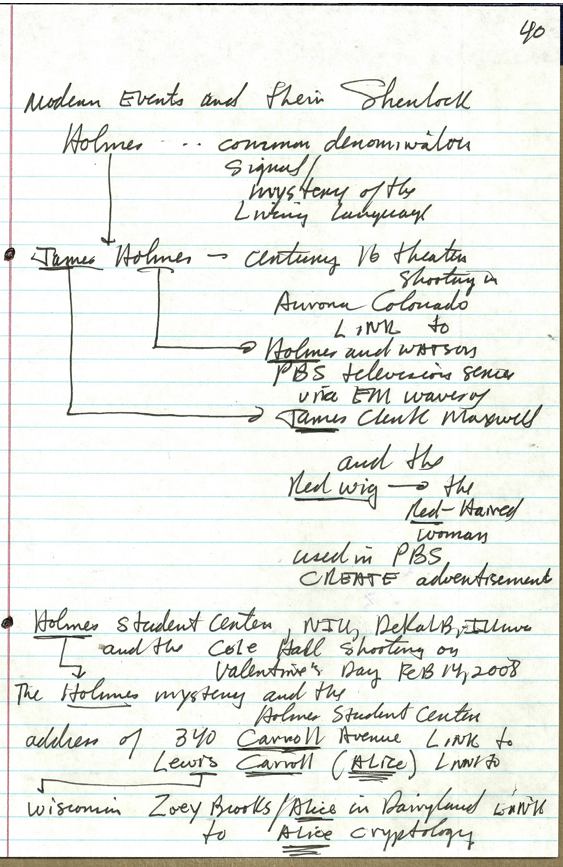 40
Modern Events and their Sherlock
Holmes .. common denominator
signal/
mystery of the
Living language
James Holmes → century 16 theater
shooting in
Aurora Colorado
LINK to
Holmes and WATSON
PBS television series
via EM waves of
James Clerk Maxwell
and the
Red wig → the
Red-Haired
woman
used in PBS
CREATE advertisement
Holmes Student Center, NIU, DeKalB, Illinois
and the Cole Hall Shooting on
Valentine's Day FeB 14, 2008
The Holmes mystery and the
Holmes Student Center
address of 340 Carroll Avenue LINK to
Lewis Carroll (Alice) LINK to
Wisconsin Zoey Brooks/Alice in Dairyland LINK
to Alice cryptology